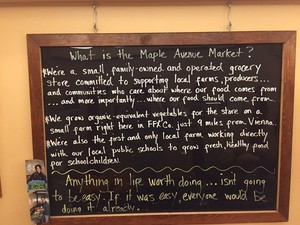 What is the Maple Avenue Market?
We're a small, family-owned and operated grocery
store committed to supporting local farms, producers...
and communities who care about where our food comes from
...and more importantly... where our food should come from.
We grow organic-equivalent vegetables for the store on a
small farm right here in FFX Co. just 9 miles from Vienna.
We're also the first and only local farm working directly
with our local public schools to grow fresh, healthy food
for schoolchildren.
Anything in life worth doing... isnt going
to be easy. If it was easy, everyone would be
doing it already.